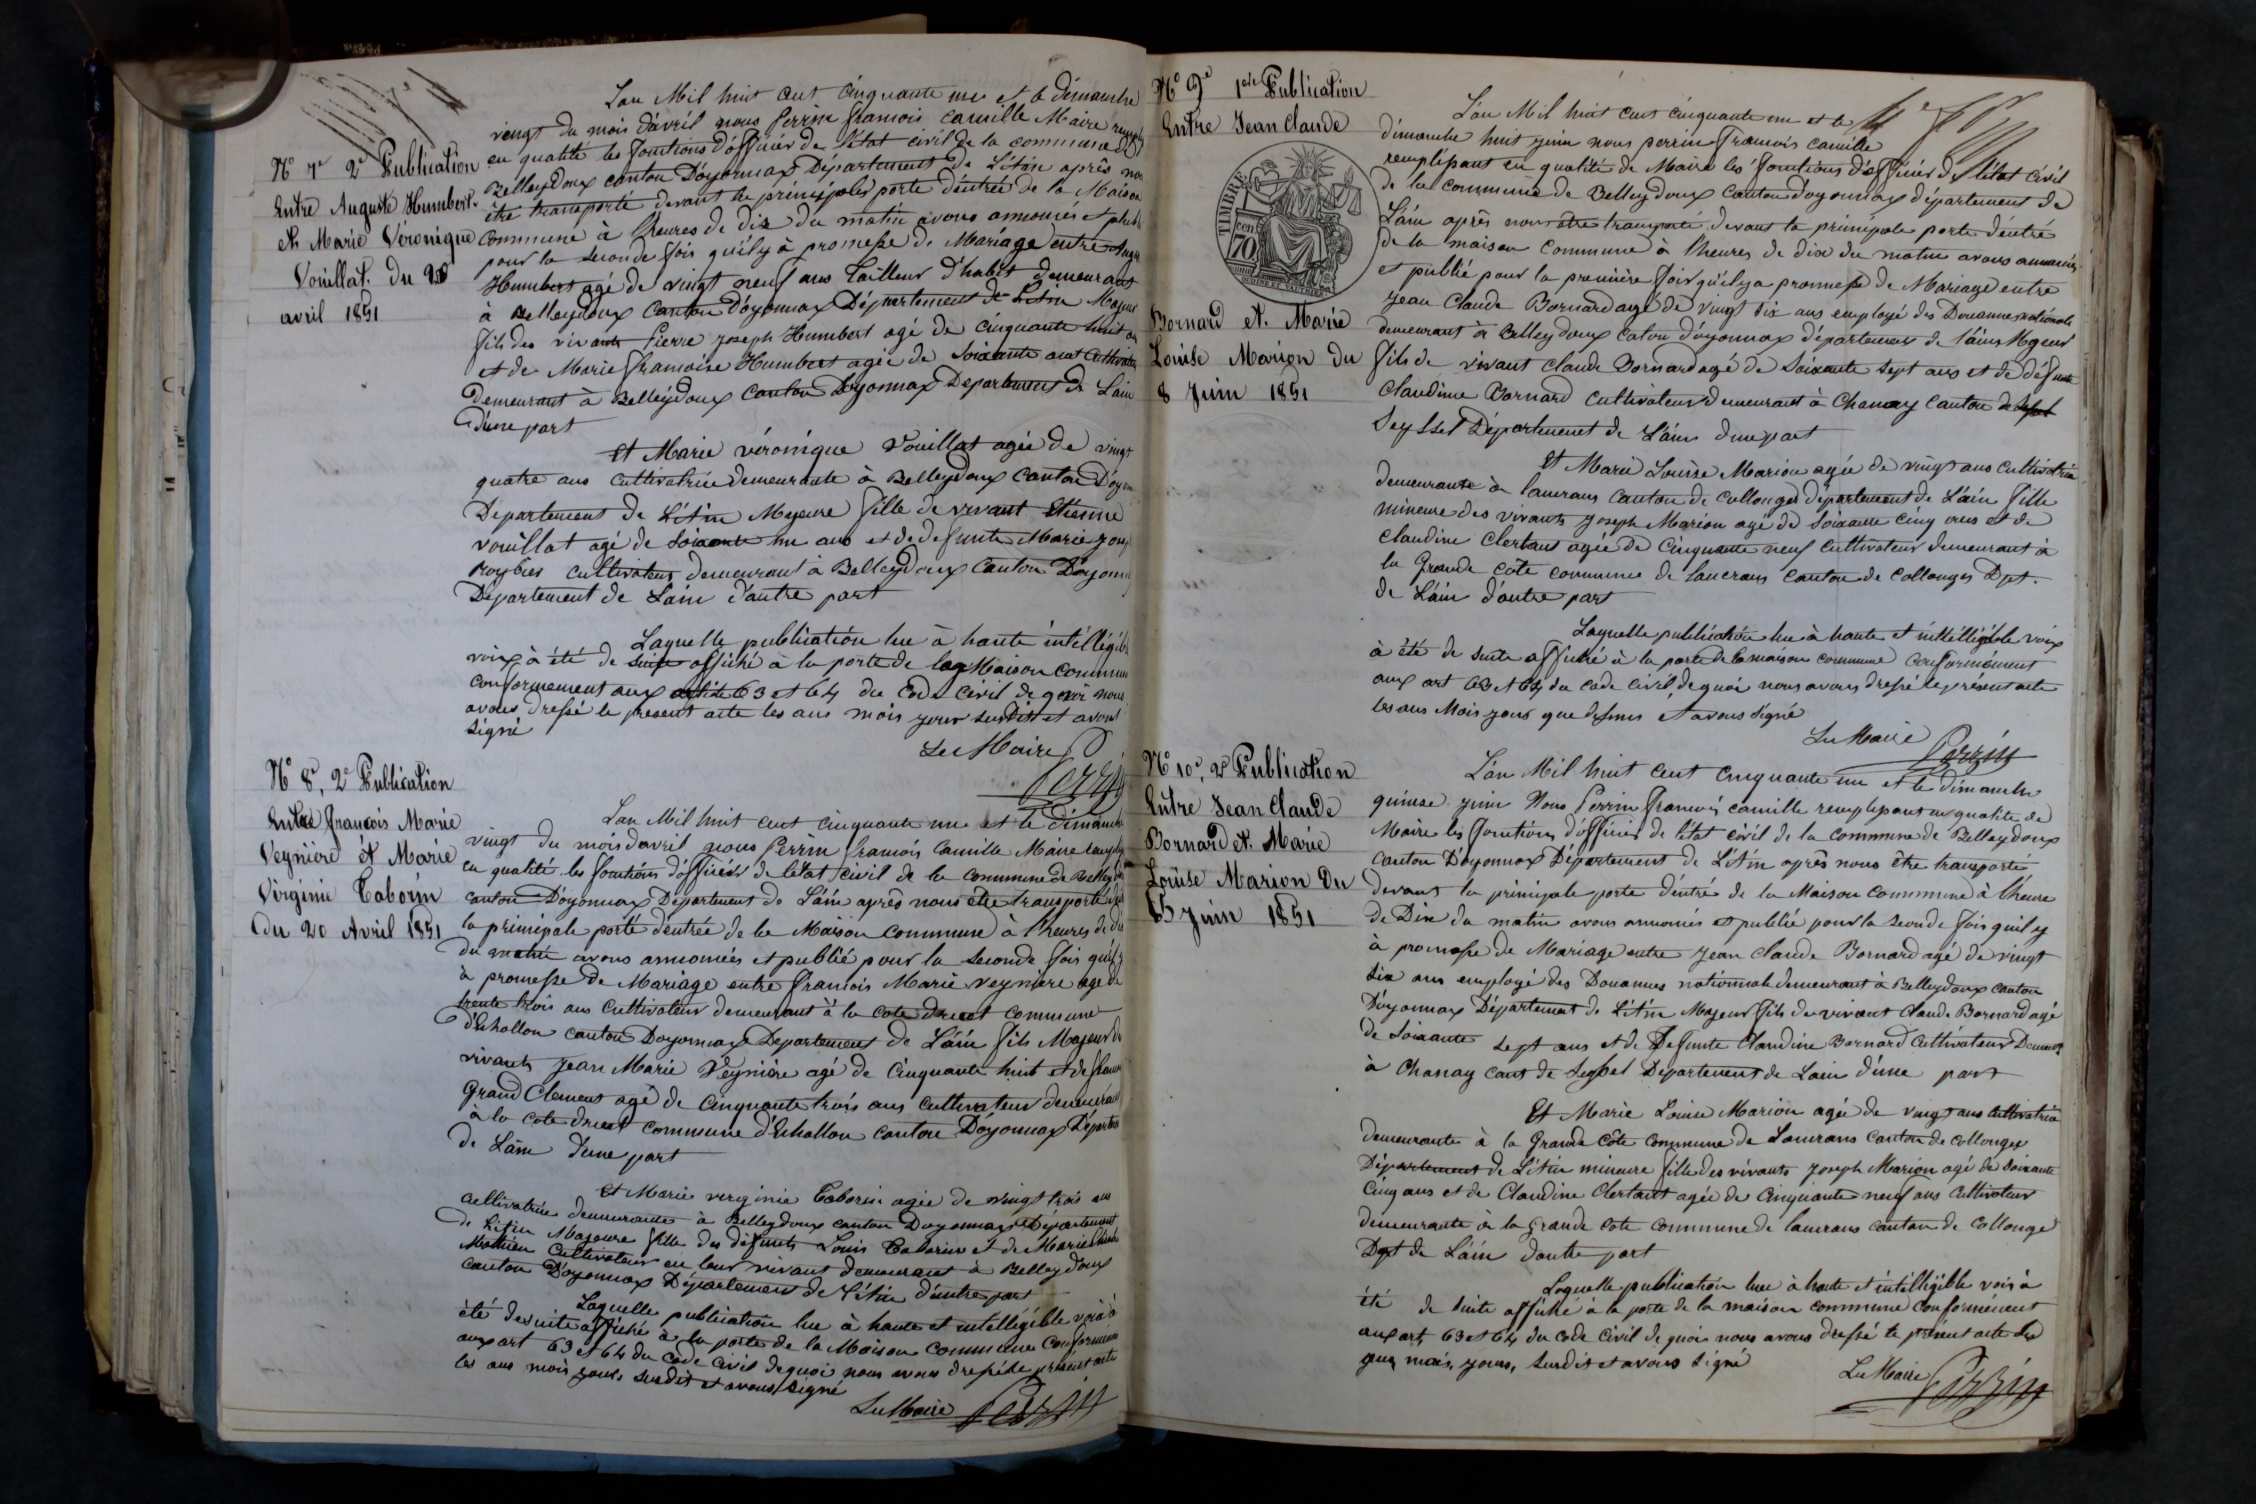 N° 7e 2e Publication
Entre Auguste Humbert
et Marie Veronique
Vouillat. Du 20
avril 1851
Lan Mil huit cent cinquante une et le dimanche
vingt du mois d'avril nous Perrin francois camille Maire
en qualité les fonctions d'officier de l'état civil de la commune de
Belleydoux canton D'oyonnax Département de L'Ain après nous
être transporté devant la principale porte d'entrée de la Maison
commune à lheures de dix du matin avons annoncés et publié
pour la seconde fois qu'ily à promesse de Mariage entre
Humbert agé de vingt neuf ans Tailleur d'habit demeurant
à Belleydoux Canton D'oyonnax Département de L'Ain Majeur
fils des vivants Pierre joseph Humbert agé de cinquante huit ans
et de Marie francoise Humbert agée de soixante ans Cultivateur
demeurant à Belleydoux Canton Doyonnax Departement de Lain
D'une part
Et Marie véronique Vouillat agée de vingt
quatre ans cultivatrice demeurante à Belleydoux Canton D'oyon
Departement de L'Ain Majeure fille de vivant Etienne
vouillat agé de soixante une ans et de defunte Marie
cultivateur demeurant à Belleydoux Canton D'oyonn
Département de Lain d'autre part
Laquelle publication lue à haute intélligible
voix à été de suite affiché à la porte de la Maison commune
conformement aux article 63 et 64 du code civil de quoi nous
avons dressé le present acte les ans mois jour susdit et avons
signé
Le Maire
Perrin
N° 8e, 2e Publication
Entre francois Marie
Veyniere et Marie
Virginie Taborin
du 20 Avril 1851
Lan Mil huit cent cinquante une et le dimanche
vingt du mois davril nous Perrin francois Camille Maire
en qualité les fonctions d'officier de letat civil de la commune de
canton D'oyonnax Departement de Lain après nous être transporté
la principale porte d'entrée de la Maison commune à lheures de dix
du matin avons annoncées et publié pour la seconde fois qu'il y
à promesse de Mariage entre francois Marie veyniere agé de
trente trois ans Cultivateur demeurant à la cote commune
d'Echallon canton Doyonnax Departement de L'ain fils Majeur de
vivants jean Marie Veyniere agé de Cinquante huit et de
Grand Clement agé de Cinquante trois ans cultivateur demeurant
à la cote commune d'Echallon canton D'oyonnax Départem
de Lain d'une part
Et Marie virginie Taborin agée de vingt trois ans
cultivatrice demeurante à Belleydoux canton Doyonnax Département
de L'Ain Majeure fille des défunts Louis Taborin et de Marie
Mathieu Cultivateur en leur vivant demeurant à Belleydoux
canton D'oyonnax Département de L'Ain d'autre part
Laquelle publication lue à haute et intellegible voix à
été de suite affiché à la porte de la Maison commune Conformément
aux art 63 et 64 du code civil de quoi nous avons dressé le présent acte
les ans mois jours susdit et avons signé
Le Maire Perrin
N° 9e 1ere Publication
Entre Jean Claude
TIMBRE
70 cen
Bornard et. Marie
Louise Marion du
8 Juin 1851
L'an Mil huit cent cinquante une et le
dimanche huit juin nous perrin francois camille
remplissant en qualité de Maire les fonctions d'officier de l'état civil
de la commune de Belleydoux canton d'oyonnax département de
L'ain après nous être transporté devant la principale porte d'entré
de la maison commune à lheures de dix du matin avons annoncés
et publié pour la première fois qu'il y a promesse de Mariage entre
jean Claude Bornard agé de vingt six ans employé des Douannes nationale
demeurant à Belleydoux canton d'oyonnax département de l'ain Majeur
fils de vivant claude Bornard agé de Soixante sept ans et de défunte
Claudine Bornard cultivateur demeurant à Chanay Canton de
Seyssel Département de L'ain d'une part
Et Marie Louise Marion agée de vingt ans cultivatrice
demeurante à lancrans canton de collonges département de L'ain fille
mineure des vivants joseph Marion agé de soixante cinq ans et de
claudine Clertant agée de cinquante neuf cultivateur demeurant à
la Grande côte commune de lancrans canton de collonges Dpt.
de L'ain d'autre part
Laquelle publication lue à haute et intélligible voix
à été de suite affiché à la porte de la maison commune conformément
aux art 63 et 64 du code civil de quoi nous avons dressé le présent acte
les ans Mois jours que dessus et avons signé
Le Maire Perrin
N° 10e, 2e Publication
Entre Jean Claude
Bornard et. Marie
Louise Marion Du
15 Juin 1851
L'an Mil huit cent cinquante une et le dimanche
quinze juin Nous Perrin francois camille remplissant en qualité de
Maire les fonctions d'officier de l'état civil de la commune de Belleydoux
canton D'oyonnax Département de L'Ain après nous être transporté
devant la principale porte d'entré de la Maison commune à l'heure
de Dix du matin avons annoncés et publié pour la seconde fois quil y
à promesse de Mariage entre jean claude Bornard agé de vingt
six ans employé des Douannes nationale demeurant à Belleydoux canton
D'oyonnax Département de L'Ain Majeur fils de vivant Claude Bornard agé
de Soixante sept ans et de Defunte Claudine Bornard cultivateur Demeur
à Chanay cant de Seyssel Departement de Lain d'une part
Et Marie Louise Marion agée de vingt ans cultivatrice
demeurante à la Grande côte commune de Lancrans canton de collonges
Département de L'Ain mineure fille des vivants joseph Marion agé de soixante
cinq ans et de Claudine Clertant agée de cinquante neuf ans cultivateur
demeurante à la grande cote commune de lancrans canton de Collonge
Dpt de L'ain d'autre part
Laquelle publication lue à haute et intélligible voix à
été de suite affiché à la porte de la maison commune conformément
aux art 63 et 64 du code civil de quoi nous avons dressé le présent acte les
ans mois, jours, susdit et avons signé
Le Maire Perrin